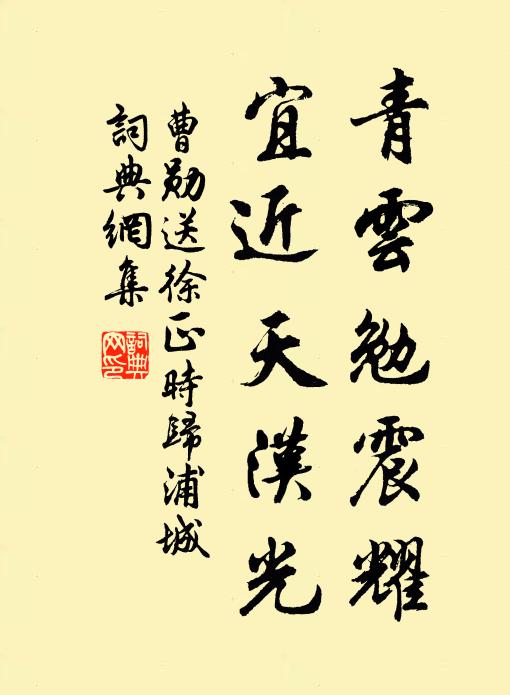 青雲勉震耀
宜近天漢光
曹勛送徐正時歸浦城
詞典網集
詞典网印